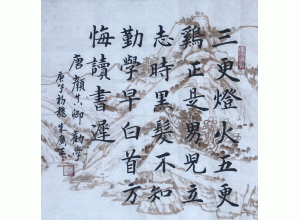 三更燈火五更
鷄正是男兒立
志時黑髮不知
勤學早白首方
悔讀書遲
唐顏真卿勸學
庚子初